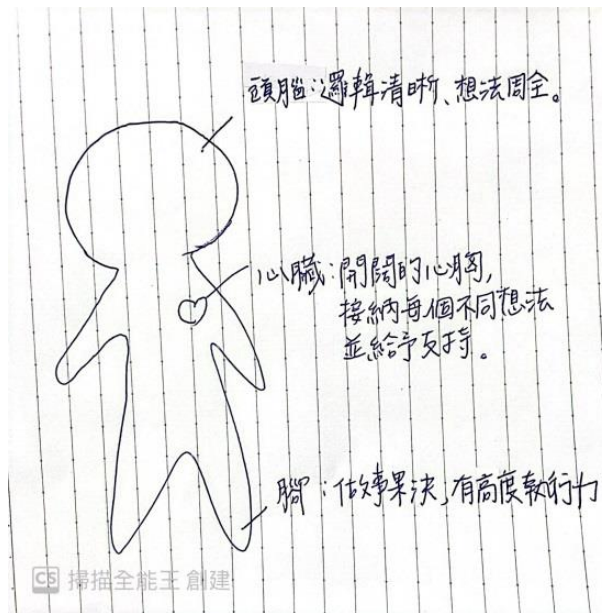 頭腦:邏輯清晰、想法周全。
心臟:開闊的心胸,
接納每個不同想法
並給予支持。
腳:做事果決,有高度執行力
CS 掃描全能王 創建